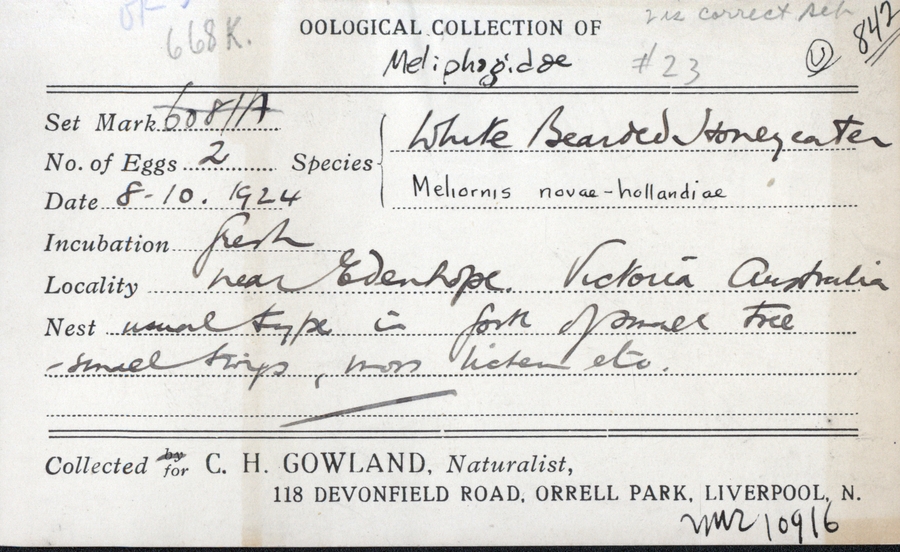 668K. OOLOGICAL COLLECTION OF is correct 842
Meliphagidae #23
Set Mark 608/1A
No. of Eggs 2 Species White Bearded Honeyeater
Meliornis novae-hollandiae
Date 8-10.1924
Incubation fresh
Locality near Edenhope. Victoria Australia
Nest usual type in fork of small tree
-small twigs, moss lichen etc.
Collected by for C. H. GOWLAND, Naturalist,
118 DEVONFIELD ROAD, ORRELL PARK, LIVERPOOL, N.
10916